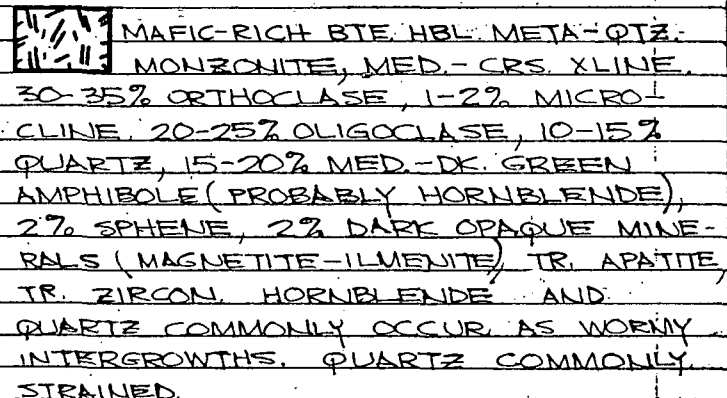 MAFIC-RICH BTE. HBL. META-QTZ.-
MONZONITE, MED.-CRS. XLINE.
30-35% ORTHOCLASE, 1-2% MICRO-
CLINE, 20-25% OLIGOCLASE, 10-15%
QUARTZ, 15-20% MED.-DK. GREEN
AMPHIBOLE (PROBABLY HORNBLENDE),
2% SPHENE, 2% DARK OPAQUE MINE-
RALS (MAGNETITE-ILMENITE), TR. APATITE,
TR. ZIRCON. HORNBLENDE AND
QUARTZ COMMONLY OCCUR AS WORMY
INTERGROWTHS. QUARTZ COMMONLY
STRAINED.